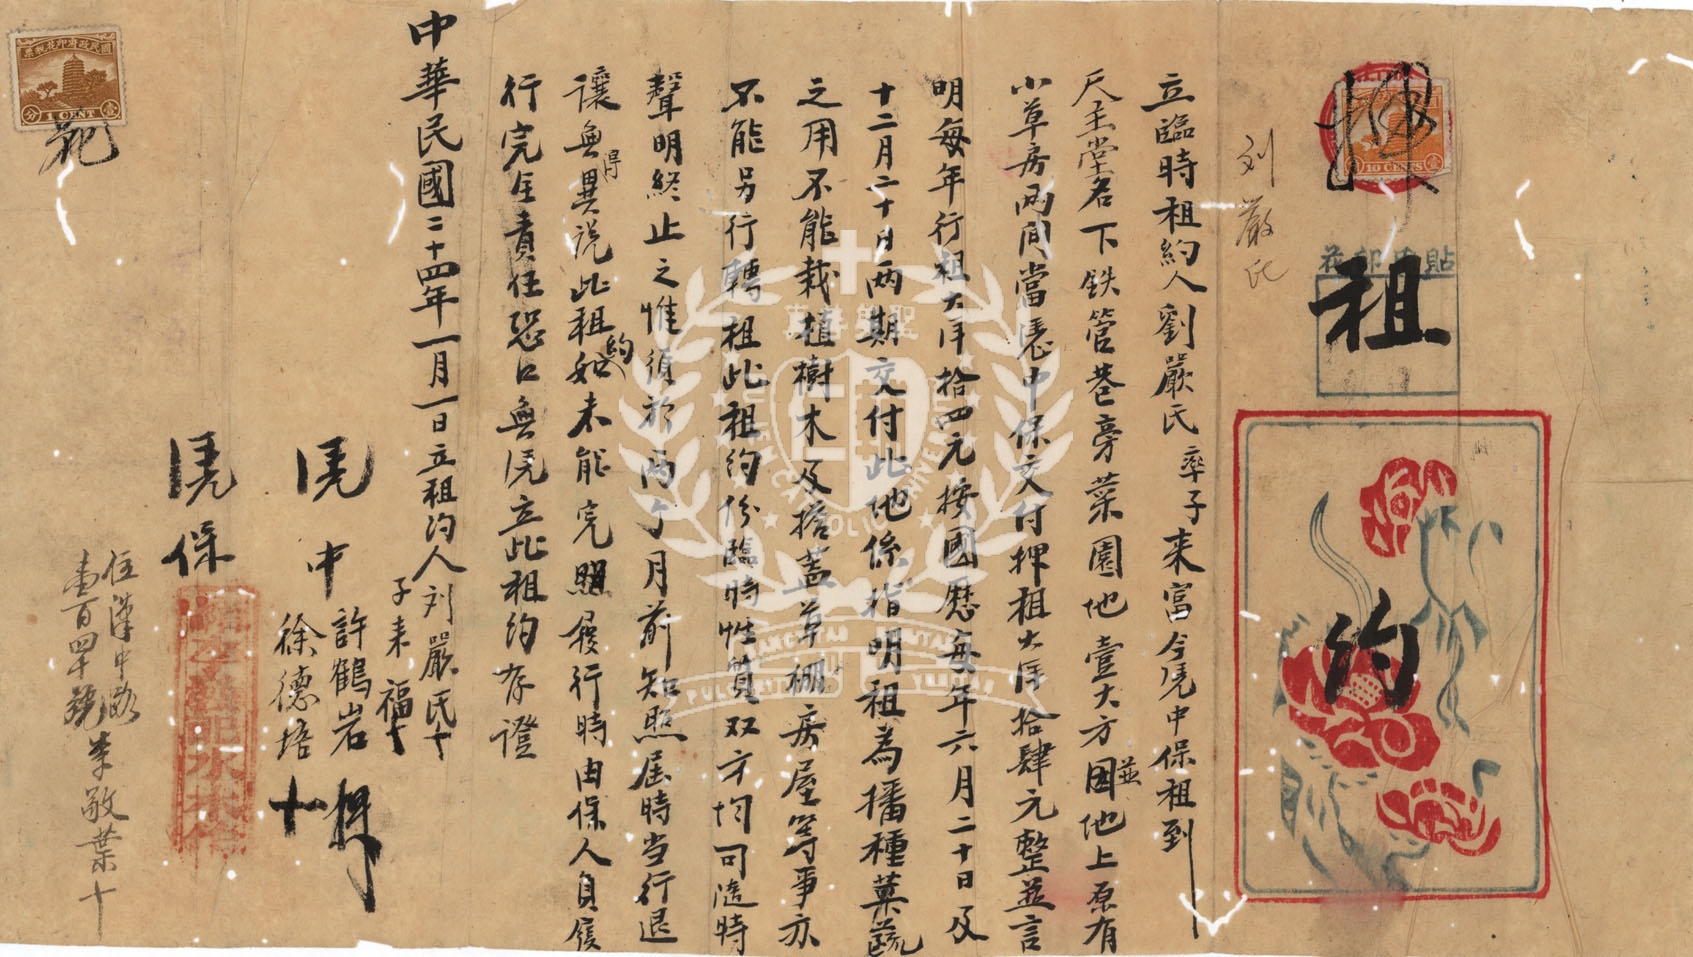 租約
刘嚴氏
貼印花
10 CENTS
立臨時租約人劉嚴氏率子来富今凴中保租到
天主堂名下鉄管巷旁菜園地壹大方園並地上原有
小草房兩间當憑中保交付押租大洋拾肆元整並言
明每年行租大洋拾四元按國厯每年六月二十日及
十二月二十日两期交付此地係指明租為播種菓蔬
之用不能栽植樹木及搭蓋草棚房屋等事亦
不能另行轉租此租約份臨時性質双方均可隨時
聲明終止之惟須於兩个月前知照届時当行退
讓無得異说此租約如未能完照履行時由保人負履
行完全責任恐口無凴立此租约存證
中華民國二十四年一月一日立租约人刘嚴氏十
子来福十
凴中許鶴岩押
徐德培十
凴保
住漢中路
壹百四十號李敬葉十
國民政府印花税票
壹分
1 CENT